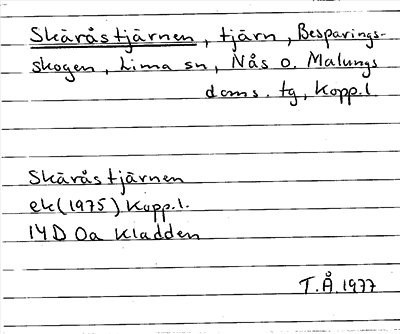 Skäråstjärnen, tjärn, Besparings-
skogen, Lima sn, Nås o. Malungs
doms. tg, Kopp.l.
Skäråstjärnen
ek(1975) Kopp.l.
14D 0a Kladden
T.Å. 1977